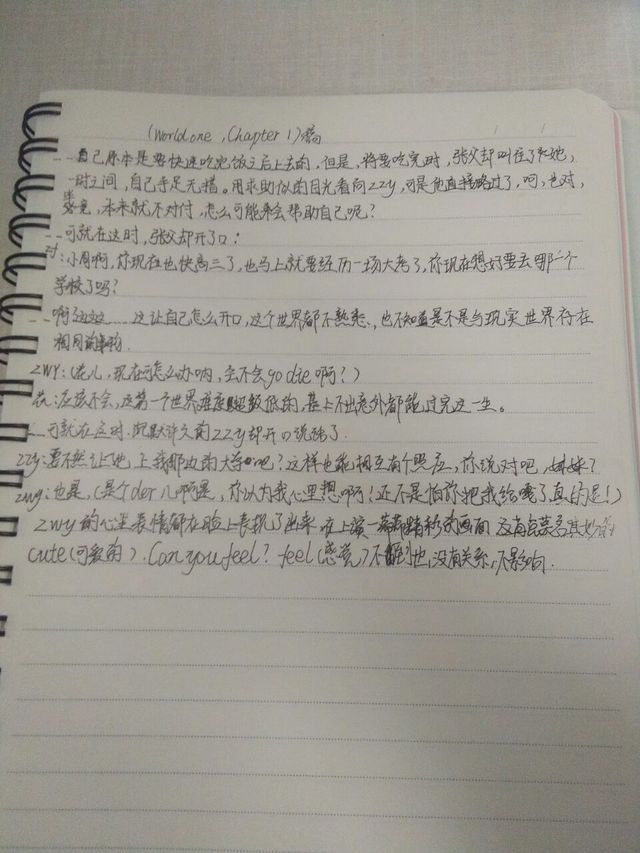 (World one , Chapter 1) 稿
...自己原本是要快速吃完饭之后上去的，但是，将要吃完时，张父却叫住了她，
一时之间，自己手足无措。用求助似的目光看向zzy，可是他直接略过了，呵，也对，
毕竟，本来就不对付，怎么可能来会帮助自己呢？
...可就在这时，张父却开了口：
对：小周啊，你现在也快高三了，也马上就要经历一场大考了，你现在想好要去哪一个
学校了吗？
...啊这这这......这让自己怎么开口，这个世界都不熟悉，也不知道是不是与现实世界存在
相同的事物.
zwy：(在儿，现在可怎么办呐，会不会go die啊？)
在：应该不会，这第一个世界难度超级低的，基上不出意外都能过完这一生。
...可就在这时.沉默许久的zzy却开口说话了.
zzy：要不然让她上我那边的大学吧？这样也能相互有个照应，你说对吧，妹妹？
zwy：也是，(是个der儿啊是，你以为我心里想啊！还不是怕你把我给嘎了真的是！)
zwy的心里表情都在脸上表现了出来 在上演一幕幕精彩的画面 这有点莫名其妙的
cute(可爱的). Can you feel? feel(感觉)不到也没有关系，不影响.